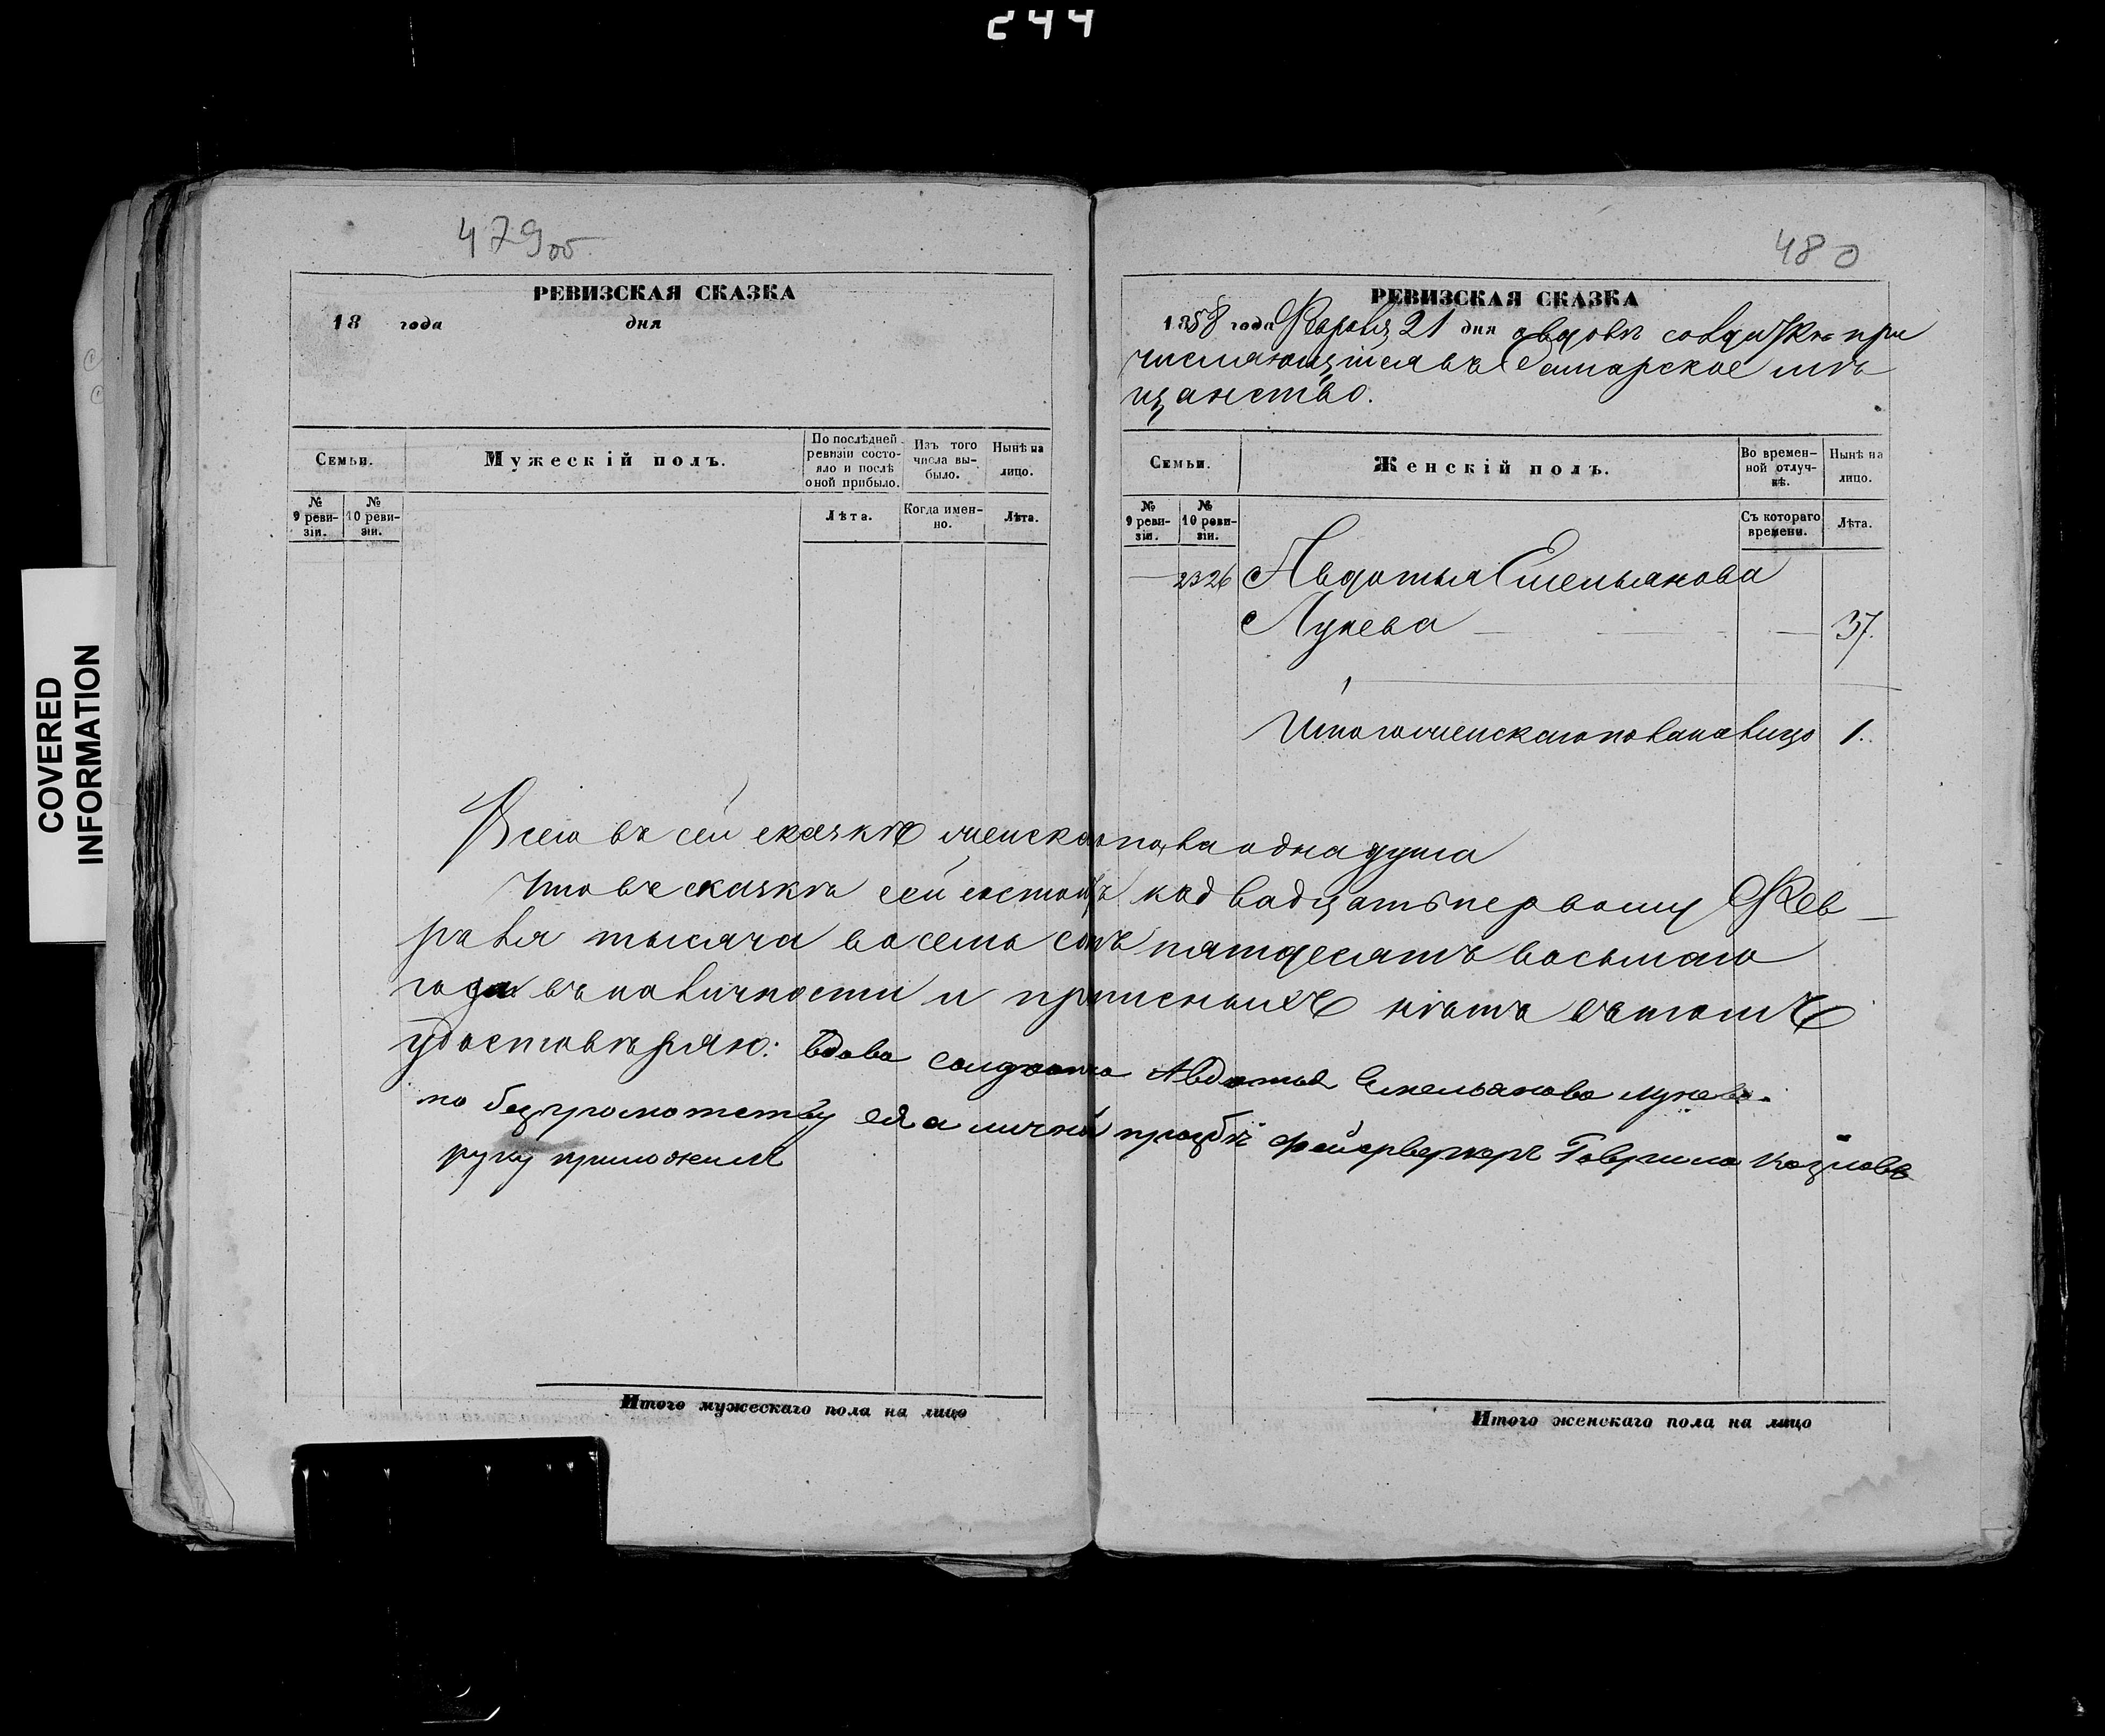 244
COVERED
INFORMATION
479 об
РЕВИЗСКАЯ СКАЗКА
18 года дня
Семьи.
Мужескій полъ.
По послѣдней ревизіи состояло и послѣ оной прибыло.
Изъ того числа выбыло.
Нынѣ на лицо.
№ 9 ревизіи.
№ 10 ревизіи.
Лѣта.
Когда именно.
Лѣта.
Итого мужескаго пола на лицо
480
РЕВИЗСКАЯ СКАЗКА
1858 года Февраля 21 дня о вдовѣ солдаткѣ при
числяющейся въ Самарское мѣ
щанство.
Семьи.
Женскій полъ.
Во временной отлучкѣ.
Нынѣ на лицо.
№ 9 ревизіи.
№ 10 ревизіи.
Съ котораго времени.
Лѣта.
2326 Авдотья Емельянова
Лунева 37.
Итого женскаго пола на лицо 1.
Всего въ сей сказкѣ женскаго пола одна душа
Что въ сказкѣ сей состоитъ къ двадцать первому Фев
раля тысяча восемь сотъ пятдесятъ восьмаго
года въ наличности и прописныхъ нѣтъ въ томъ
удостовѣряю: вдова солдатка Авдотья Емельянова Лунева.
по безграмотству ея а личной прозбѣ фейерверкеръ Гаврила Козловъ
руку приложилъ
Итого женскаго пола на лицо